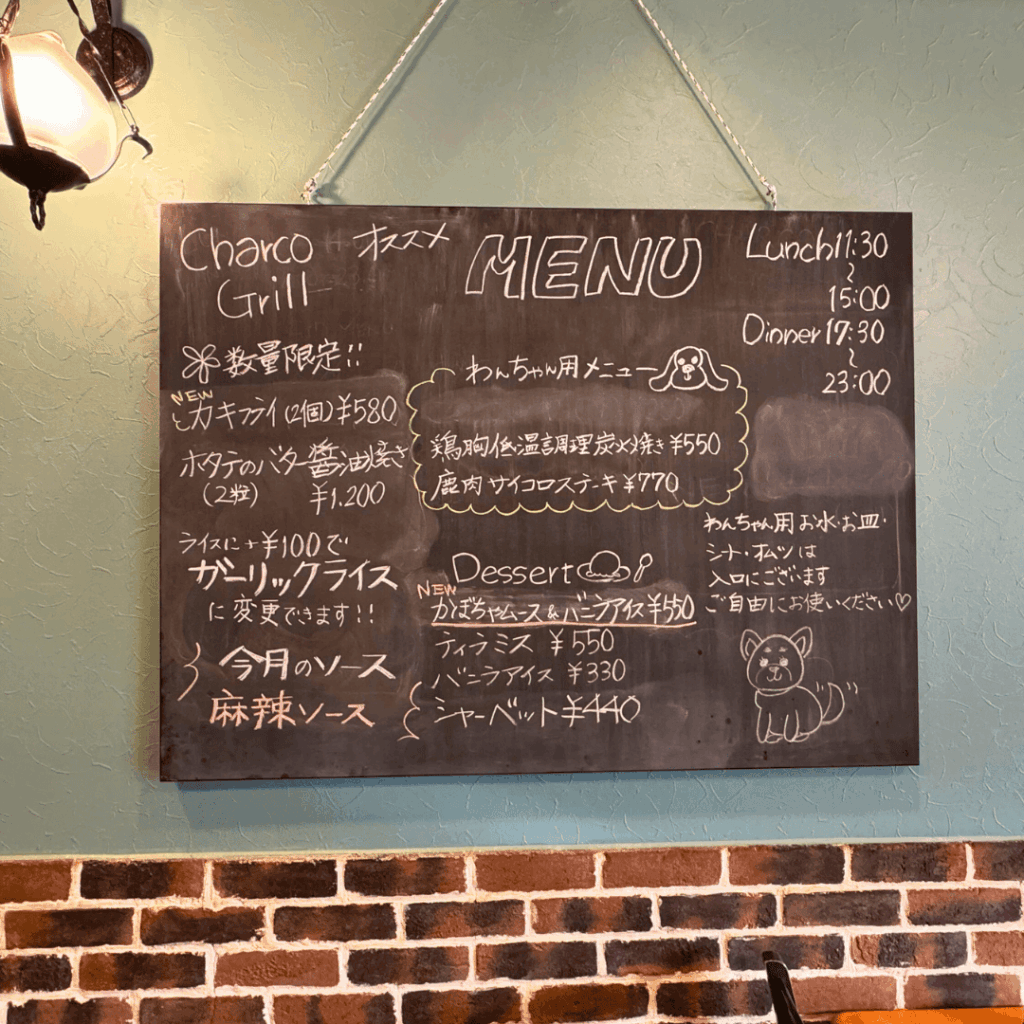 Charco
Grill
オススメ
MENU
Lunch11:30
~
15:00
Dinner17:30
~
23:00
数量限定!!
NEW
カキフライ(2個)¥580
ホタテのバター醤油焼き
(2粒) ¥1,200
ライスに+¥100で
ガーリックライス
に変更できます!!
今月のソース
麻辣ソース
わんちゃん用メニュー
鶏胸低温調理炭火焼き¥550
鹿肉サイコロステーキ¥770
Dessert
NEW
かぼちゃムース&バニラアイス¥550
ティラミス ¥550
バニラアイス ¥330
シャーベット¥440
わんちゃん用お水・お皿・
シート・オムツは
入口にございます
ご自由にお使いください♡